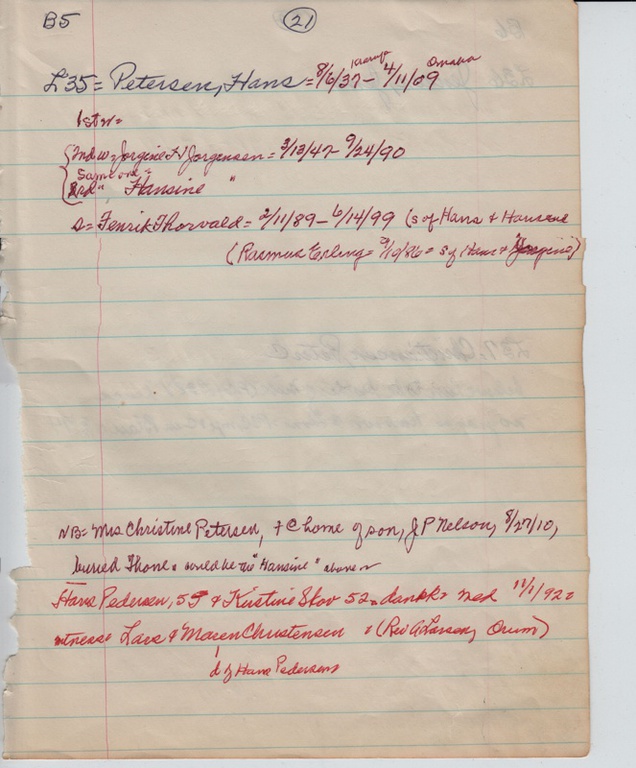 B5 21
L35 = Petersen, Hans = 8/6/37 - 4/11/09 Omaha
1st w=
2nd w= Jorgine Jorgensen = 3/13/47 - 9/24/90
Same ord =
3rd " Hansine "
s= Fenrik Thorvald = 2/11/89 - 6/14/99 (s of Hans + Hansene
(Rasmus Erling = /10/86 = s of Hans + Jorgine)
NB= Mrs Christine Petersen, + @ home of son, J P Nelson, 8/27/10,
buried Thone = could be the "Hansine" above =
Hans Pedersen, 55 & Kirstine Skov 52 = dansk = med 11/1/92 =
witness Lars & Maren Christensen = (Rev A Larsen, Orum)
d of Hans Pedersens